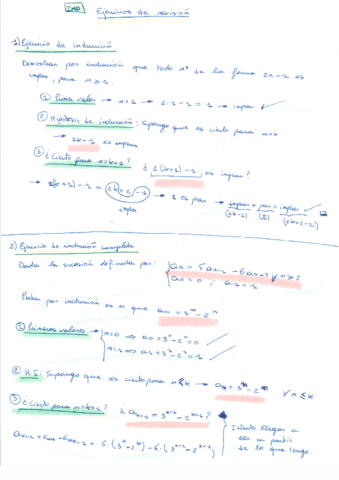 IMD Ejercicios de revisión
1) Ejercicio de inducción
Demostrar por inducción que todo nº de la forma 2n-1 es
impar, para n≥1.
① Primer valor → n=1 → 2·1-1=1 → impar ✓
② Hipótesis de inducción: Supongo que es cierto para n=k
→ 2k-1 es impar
③ ¿Cierto para n=k+1? ¿ 2(k+1)-1 es impar?
→ 2(k+1)-1 = (2k+2-1) → 2 es par → impar + par = impar ✓
impar (2k-1) (2) (2k+2-1)
2) Ejercicio de inducción completa
Dada la sucesión definida por:
a₀=0, a₁=1
Probar por inducción en n que aₙ=3ⁿ-2ⁿ
① Primeros valores → n=0 → a₀=3⁰-2⁰=0 ✓
n=1 → a₁=3¹-2¹=1 ✓
② H.I: Supongo que es cierto para n≤k → aₙ=3ⁿ-2ⁿ ∀n≤k
③ ¿Cierto para n=k+1? ¿ aₖ₊₁=3ᵏ⁺¹-2ᵏ⁺¹ ?
Intento llegar a
eso a partir
de lo que tengo.